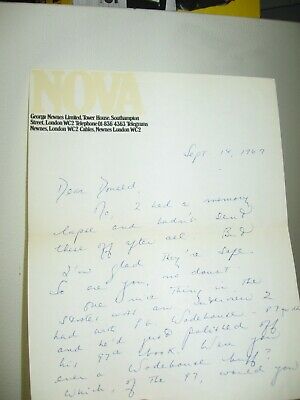 NOVA
George Newnes Limited, Tower House, Southampton
Street, London WC2 Telephone 01-836 4363 Telegrams
Newnes, London WC2 Cables, Newnes London WC2
Sept. 14, 1967
Dear Donald,
No, I had a memory
lapse and hadn't send
these off after all. But
I'm glad they're safe.
So are you, no doubt.
One nice thing in the
States was an interview I
had with P.G. Wodehouse
and he'd just polished off
his 97th book. Were you
ever a Wodehouse buff?
Which, of the 97, would you